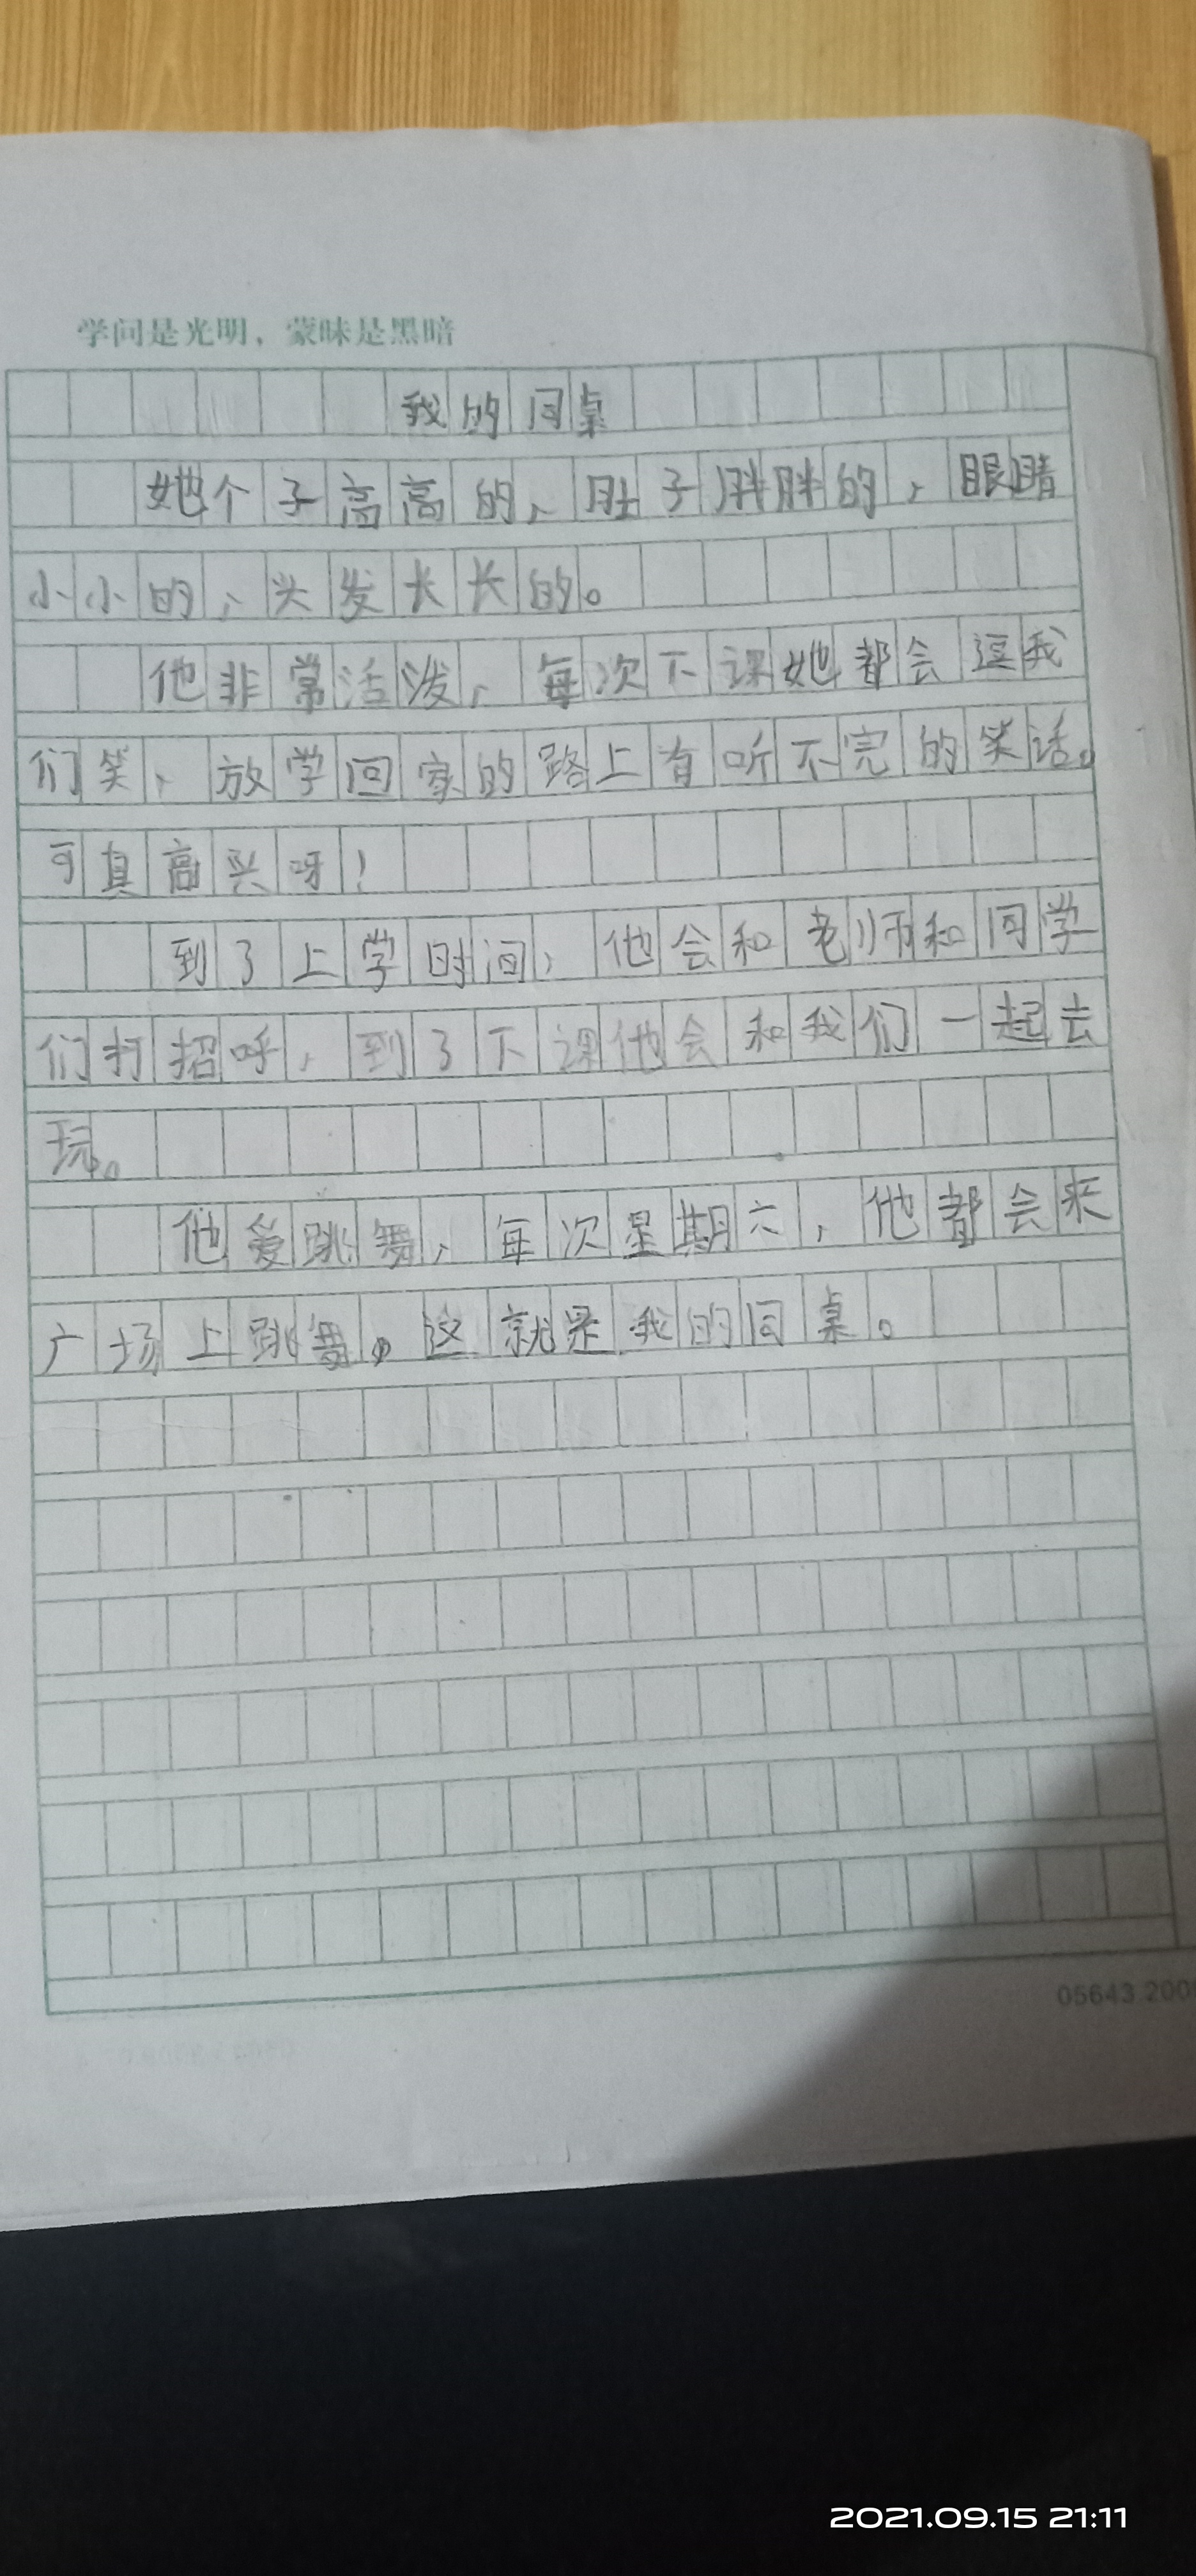 学问是光明，蒙昧是黑暗
我的同桌
她个子高高的，肚子胖胖的，眼睛
小小的，头发长长的。
他非常活泼，每次下课她都会逗我
们笑，放学回家的路上有听不完的笑话。
可真高兴呀！
到了上学时间，他会和老师和同学
们打招呼，到了下课他会和我们一起去
玩。
他爱跳舞，每次星期六，他都会来
广场上跳舞。这就是我的同桌。
05643.200
2021.09.15 21:11